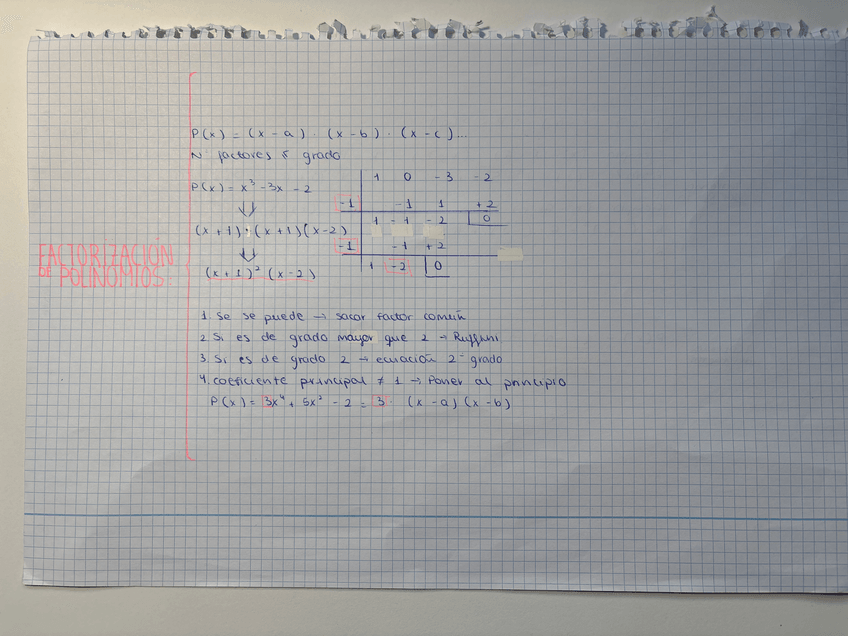 FACTORIZACIÓN
DE POLINOMIOS
P(x) = (x - a) · (x - b) · (x - c)...
Nº factores = grado
P(x) = x³ - 3x - 2
(x + 1) · (x + 1) (x - 2)
(x + 1)² (x - 2)
1 0 -3 -2
-1 -1 1 +2
1 -1 -2 0
-1 -1 +2
1 -2 0
1. Se se puede → sacar factor común
2. Si es de grado mayor que 2 → Ruffini
3. Si es de grado 2 → ecuación 2º grado
4. coeficiente principal ≠ 1 → Poner al principio
P(x) = 3x⁴ + 5x² - 2 = 3 · (x - a) (x - b)